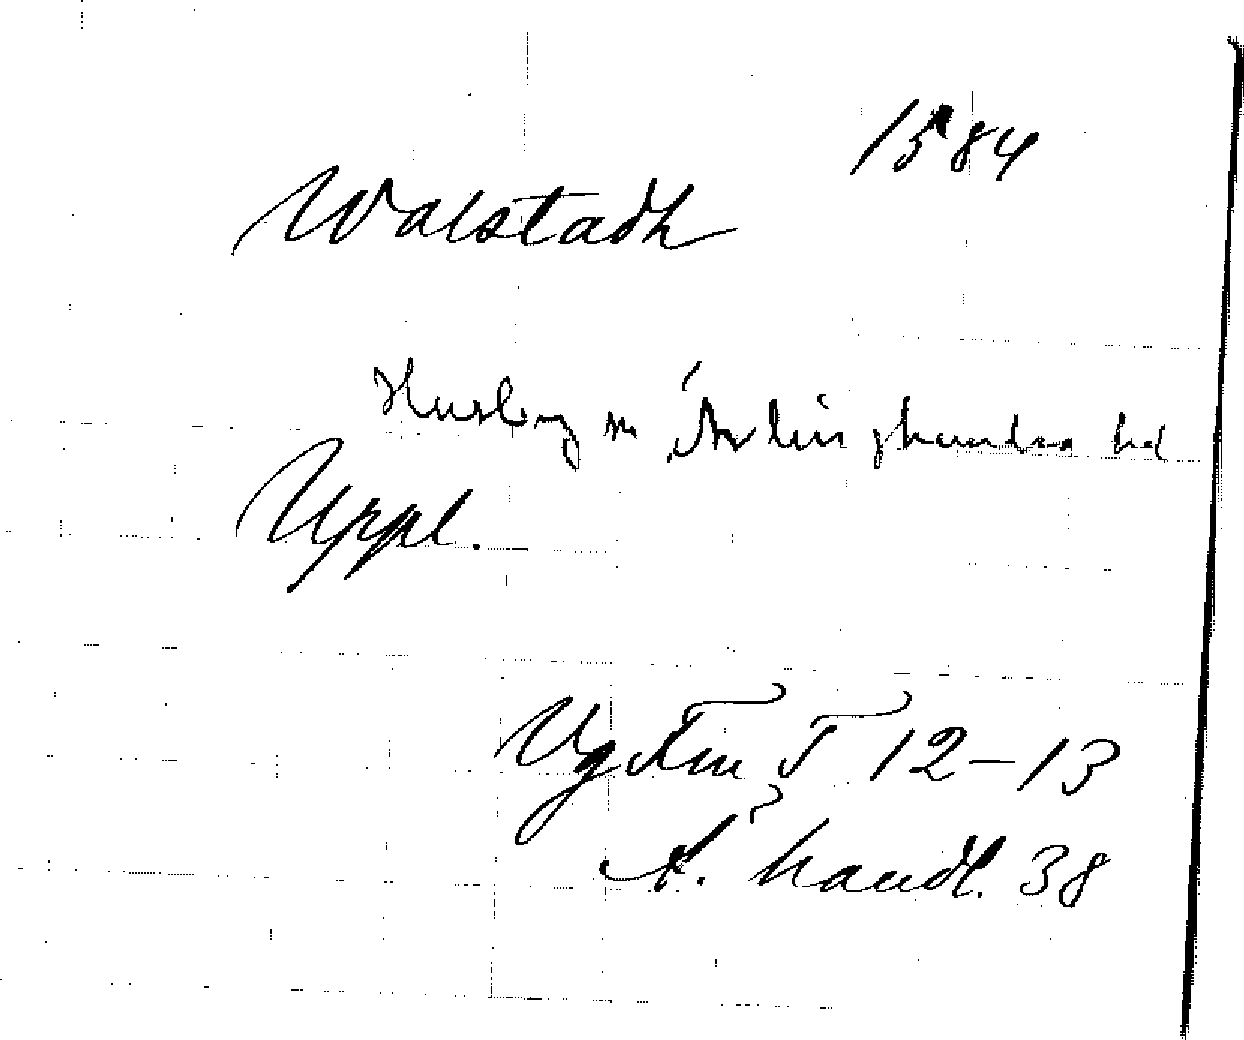 1584
Walstadh
Husby sn Ärlinghundra hd
Uppl.
Ug Äm T 12-13
Ä. handl. 38